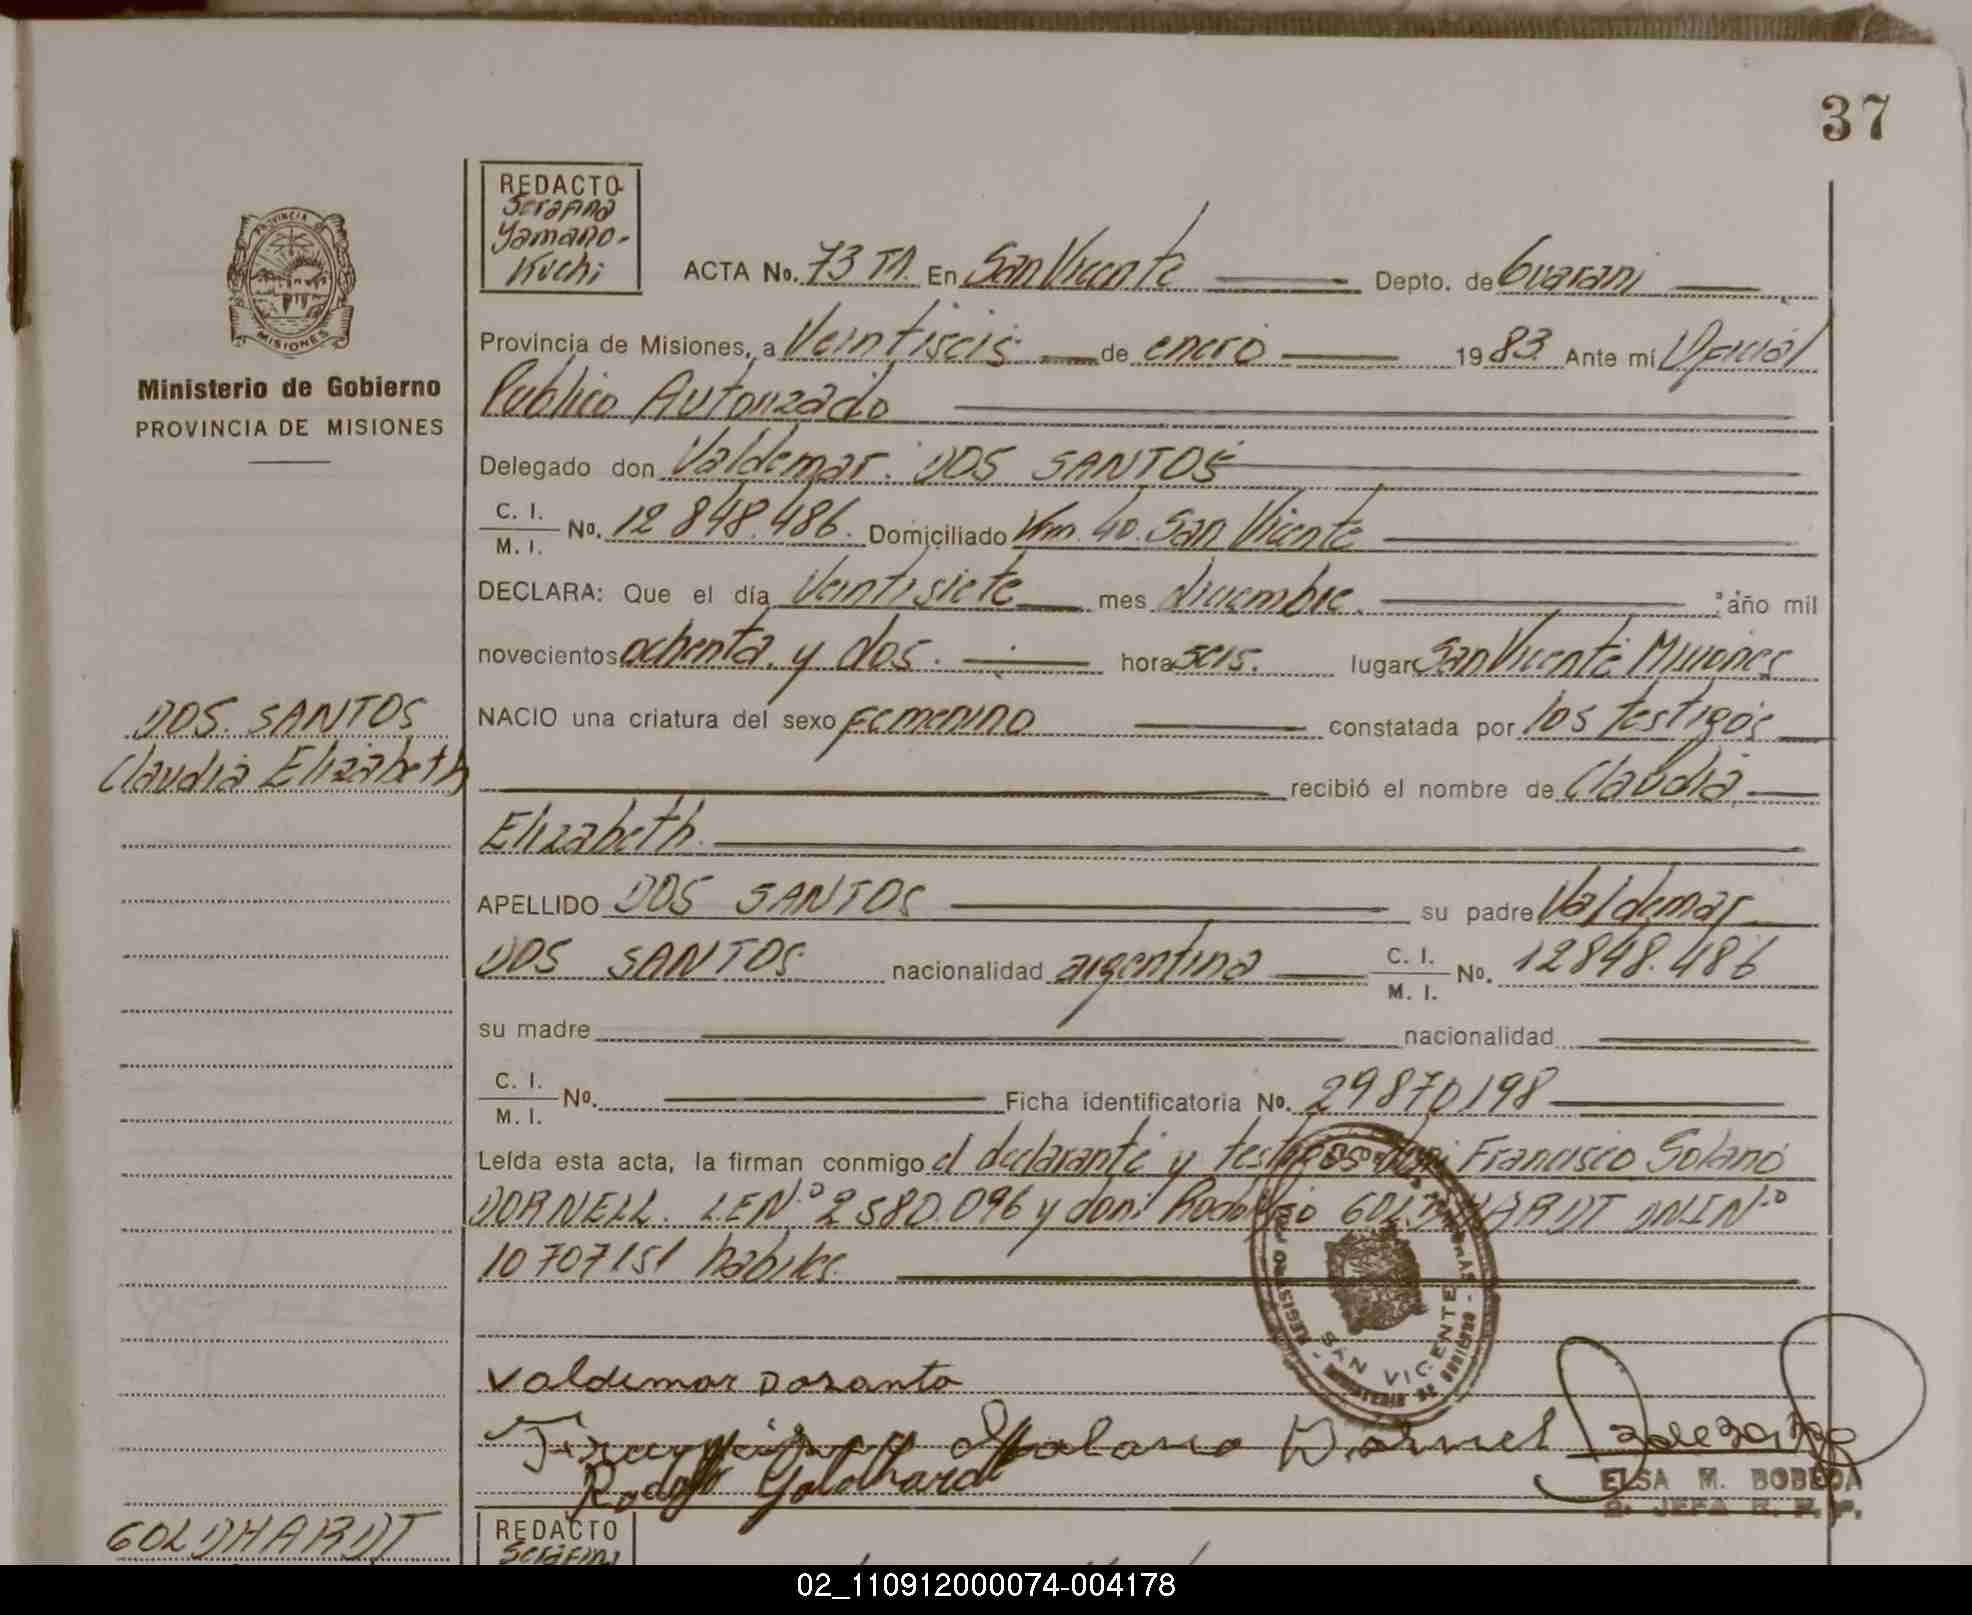 37
REDACTO
Serafina
Yamano-
Kuchi
ACTA No. 73 TA. En San Vicente Depto. de Guarani
PROVINCIA
MISIONES
Provincia de Misiones, a Veintiseis de enero 1983. Ante mi Oficial
Ministerio de Gobierno
PROVINCIA DE MISIONES
Publico Autorizado
Delegado don Valdemar. DOS SANTOS
C. I.
M. I. No. 12 848.486. Domiciliado Km. 40. San Vicente
DECLARA: Que el día Veintisiete mes diciembre. año mil
novecientos ochenta y dos. hora seis. lugar San Vicente Misiones
DOS. SANTOS
Claudia Elizabeth
NACIO una criatura del sexo femenino constatada por los testigos
recibió el nombre de Claudia
Elizabeth.
APELLIDO DOS SANTOS su padre Valdemar
DOS SANTOS nacionalidad argentina C. I.
M. I. No. 12848.486
su madre nacionalidad
C. I.
M. I. No. Ficha identificatoria No. 29870198
Leída esta acta, la firman conmigo el declarante y testigos don: Francisco Solano
DORNELL. LEN.º 2580.096 y don: Rodolfo GOLDHARDT DNIN.º
10707151 habiles
SAN VICENTE
Valdemar Dosanto
Solano Dornel
Rodolfo Goldhardt
ELSA M. BOBEDA
GOLDHARDT
REDACTO
02_110912000074-004178